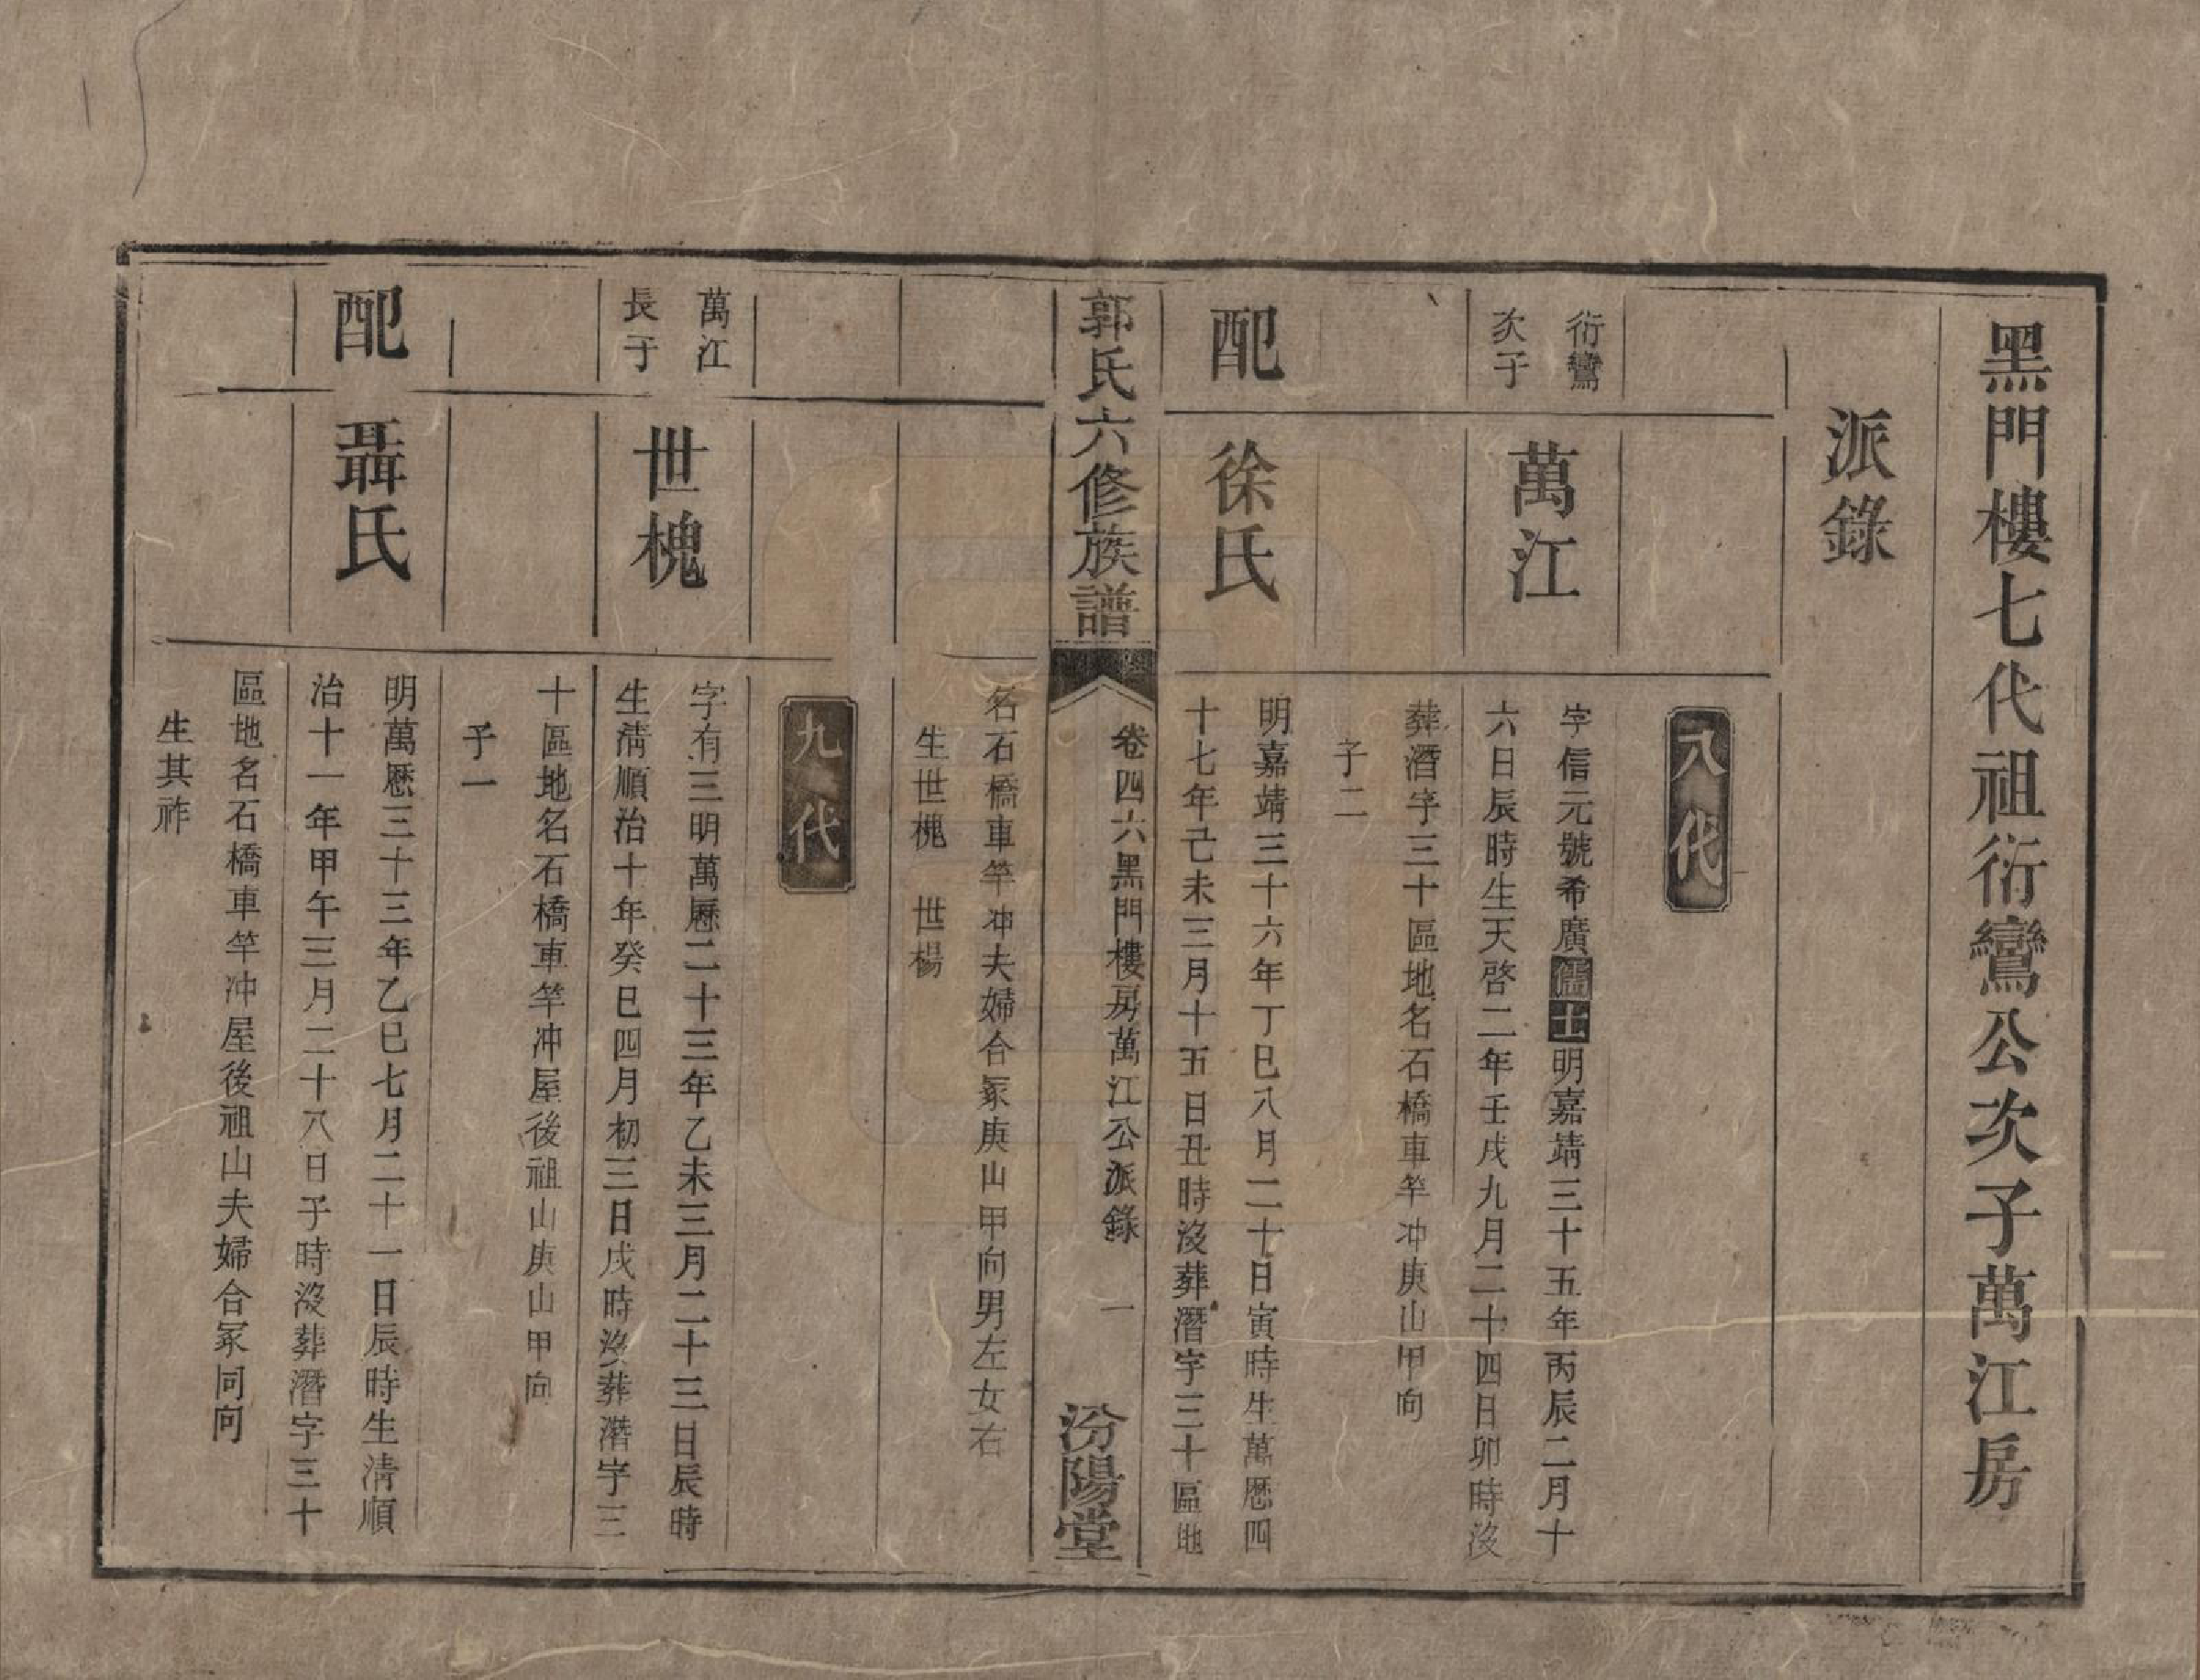 黑門樓七代祖衍鸞公次子萬江房
派錄
八代
衍鸞
次子
萬江
字信元號希廣儒士明嘉靖三十五年丙辰二月十
六日辰時生天啓二年壬戌九月二十四日卯時沒
葬潛字三十區地名石橋車竿冲庚山甲向
子二
配
徐氏
明嘉靖三十六年丁巳八月二十日寅時生萬厯四
十七年己未三月十五日丑時沒葬潛字三十區地
郭氏六修族譜
卷四六黑門樓房萬江公派錄
一
汾陽堂
名石橋車竿冲夫婦合冢庚山甲向男左女右
生世槐　世楊
九代
萬江
長子
世槐
字有三明萬厯二十三年乙未三月二十三日辰時
生清順治十年癸巳四月初三日戌時沒葬潛字三
十區地名石橋車竿冲屋後祖山庚山甲向
子一
配
聶氏
明萬厯三十三年乙巳七月二十一日辰時生清順
治十一年甲午三月二十八日子時沒葬潛字三十
區地名石橋車竿冲屋後祖山夫婦合冢同向
生其祚